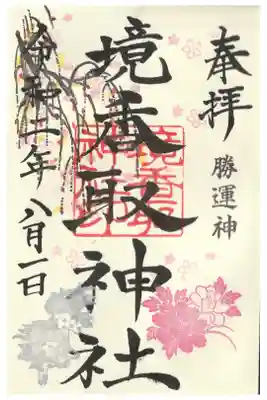 奉拝
勝運神
境香取神社
令和二年
八月一日